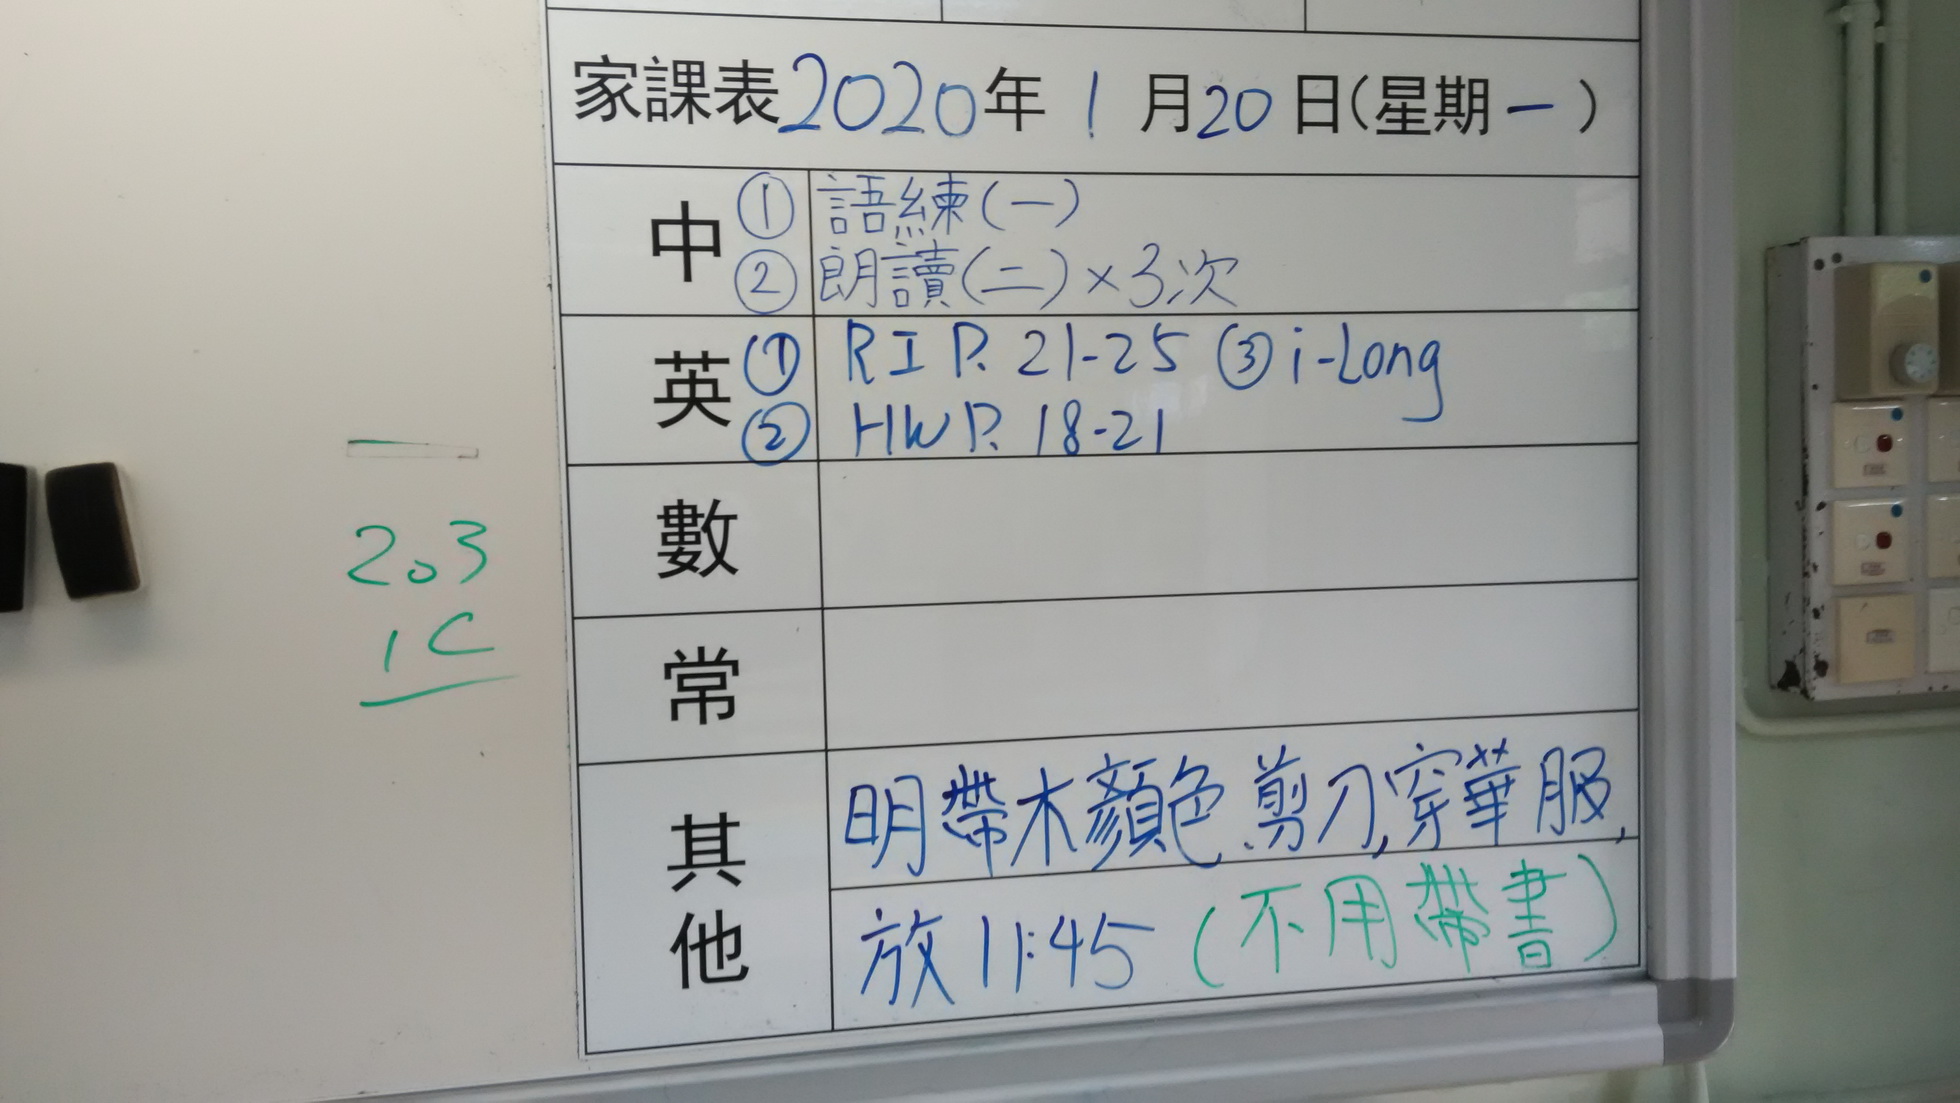 家課表2020年1月20日(星期一)
中 ① 語練(一)
② 朗讀(二)×3次
英 ① RI P. 21-25 ③ i-Long
② HW P. 18-21
數
常
其他
明帶木顏色、剪刀,穿華服,
放11:45 (不用帶書)
203
1C